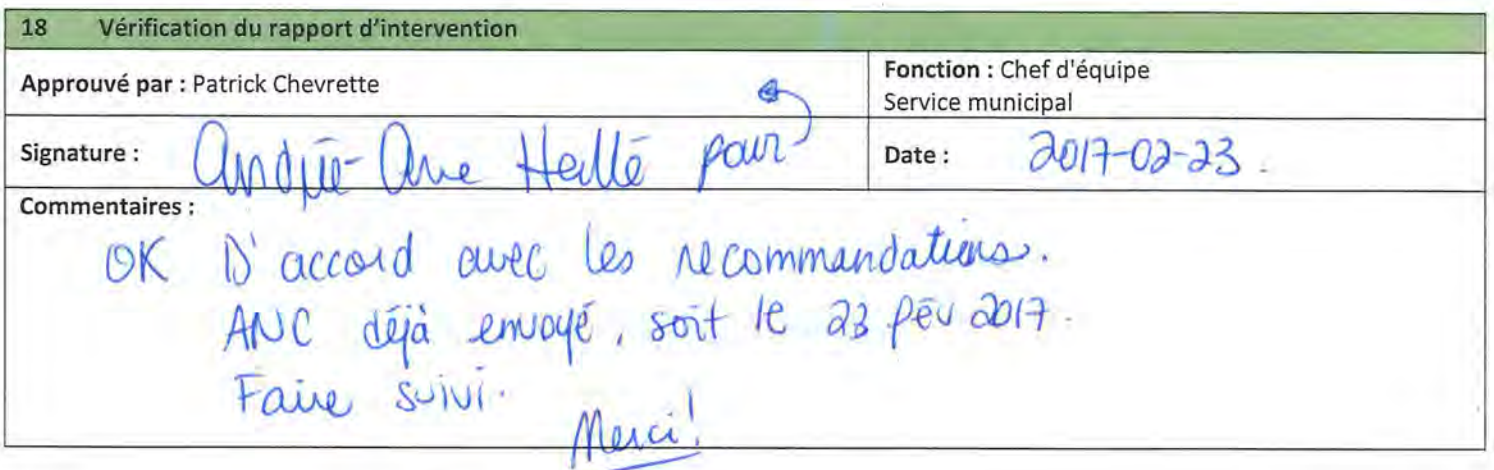 18 Vérification du rapport d'intervention
Approuvé par : Patrick Chevrette
Fonction : Chef d'équipe
Service municipal
Signature : Andrée-Ane Hallé pour
Date : 2017-02-23.
Commentaires :
OK D'accord avec les recommandations.
ANC déjà envoyé, soit le 23 fév 2017.
Faire suivi.
Merci!